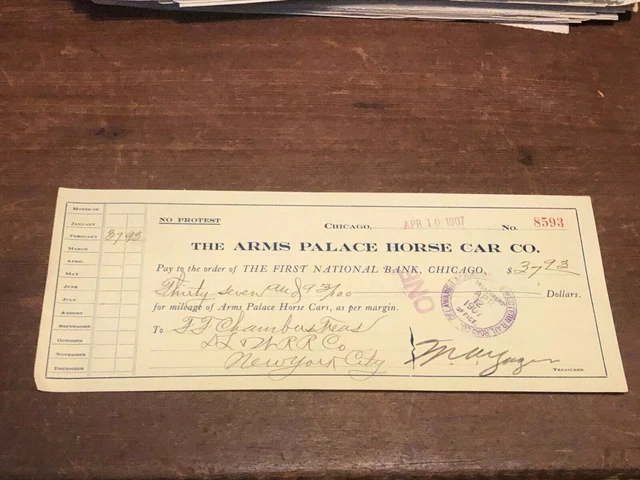 MONTH OF
JANUARY
FEBRUARY 37 93
MARCH
APRIL
MAY
JUNE
JULY
AUGUST
SEPTEMBER
OCTOBER
NOVEMBER
DECEMBER
NO PROTEST
CHICAGO, APR 10 1907 No. 8593
THE ARMS PALACE HORSE CAR CO.
Pay to the order of THE FIRST NATIONAL BANK, CHICAGO, $37 93
Thirty Seven and 93/100 Dollars.
for mileage of Arms Palace Horse Cars, as per margin.
To F F Chambers Treas
D L & W R R Co
New York City
TREASURER.